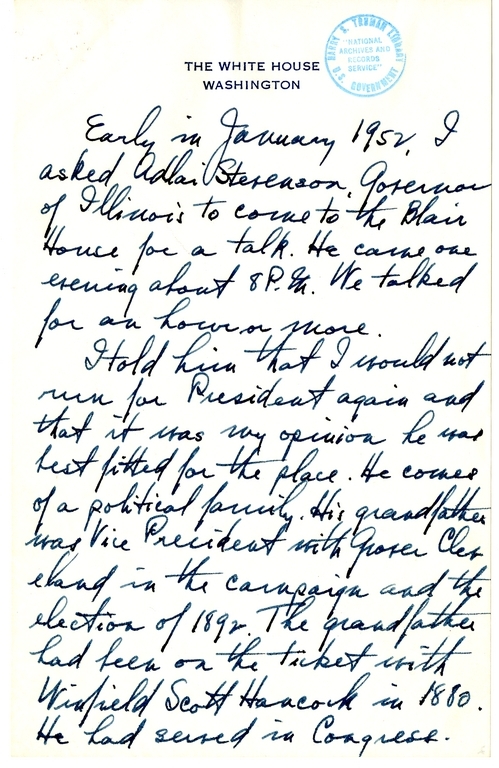 THE WHITE HOUSE
WASHINGTON
HARRY S. TRUMAN LIBRARY
"NATIONAL
ARCHIVES AND
RECORDS
SERVICE"
U.S. GOVERNMENT
Early in January 1952, I
asked Adlai Stevenson, Governor
of Illinois to come to the Blair
House for a talk. He came one
evening about 8 P.M. We talked
for an hour or more.
I told him that I would not
run for President again and
that it was my opinion he was
best fitted for the place. He comes
of a political family. His grandfather
was Vice President with Grover Clev
eland in the campaign and the
election of 1892. The grandfather
had been on the ticket with
Winfield Scott Hancock in 1880.
He had served in Congress.